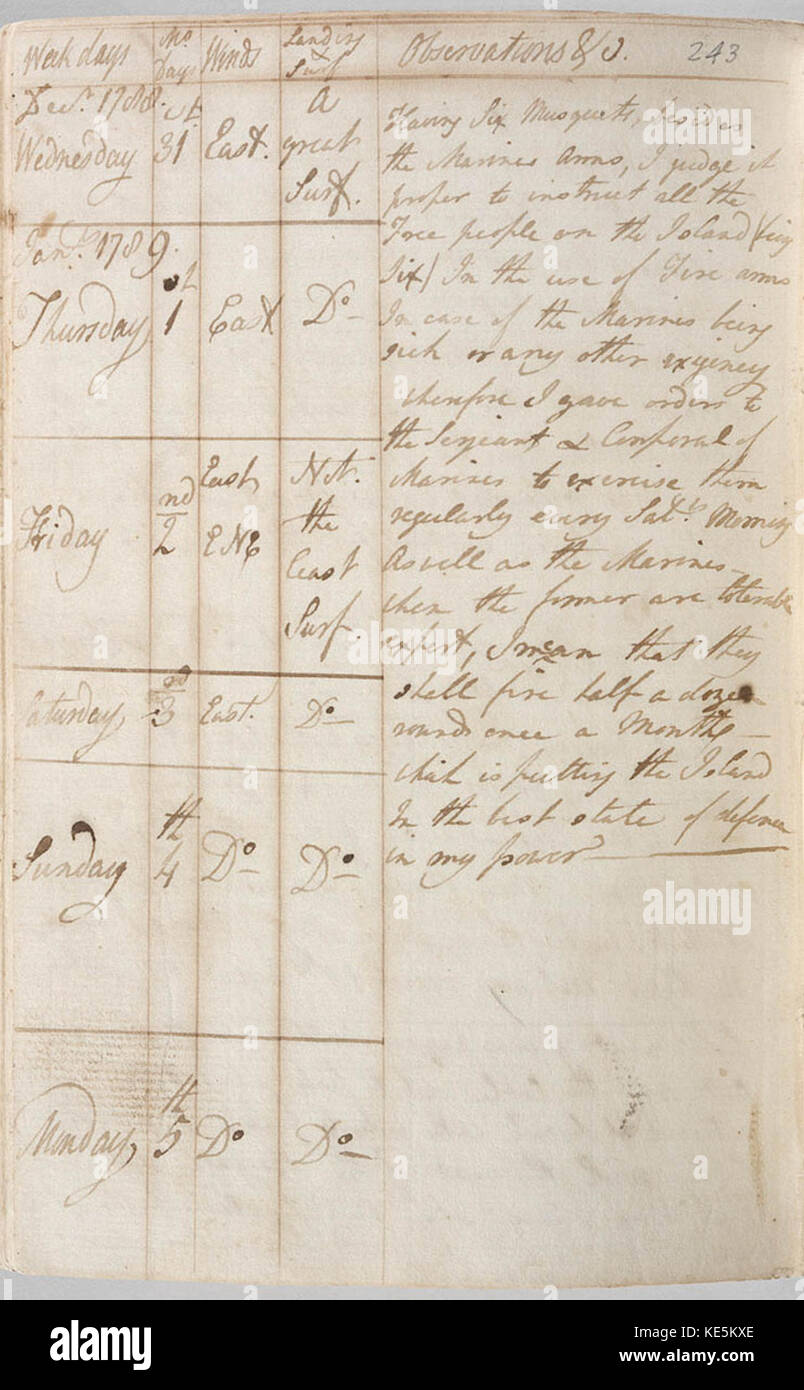 Week days Mo. Days Winds Landing & Surf Observations &c. 243
Decr. 1788.
Wednesday 31st East. A great Surf.
Jany. 1789.
Thursday 1st East Do
Friday 2nd East ENE Not. the least Surf.
Saturday 3rd East. Do
Sunday 4th Do Do
Monday 5th Do Do
Having Six Musquets, besides
the Marines Arms, I judge it
proper to instruct all the
Free people on the Island (being
Six) In the use of Fire arms
In case of the Marines being
sick or any other exigency
therefore I gave orders to
the Serjeant & Corporal of
Marines to exercise them
regularly every Saty. Morning
As well as the Marines
when the former are tolerable
expert, I mean that they
shall fire half a dozen
rounds once a Month
which is putting the Island
In the best state of defence
in my power
alamy
a
alamy stock photo
KE5KXE
www.alamy.com